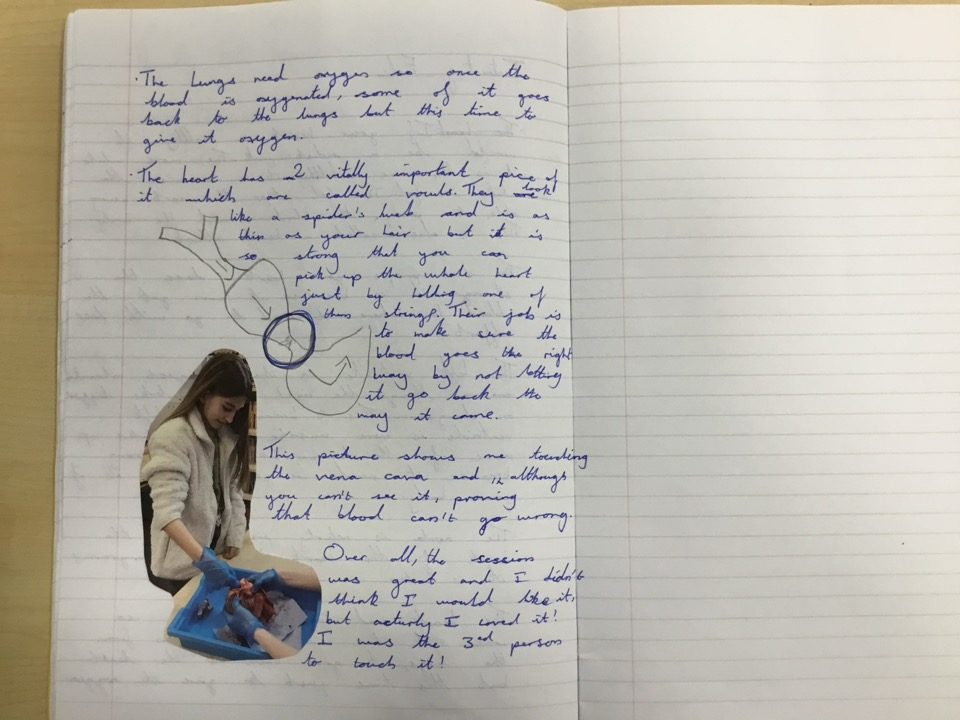 · The Lungs need oxygen so once the
blood is oxygenated, some of it goes
back to the lungs but this time to
give it oxygen.
· The heart has 2 vitally important pice of
it which are called vowls. They look
like a spider's web and is as
thin as your hair but it is
so strong that you can
pick up the whole heart
just by holding one of
thes strings. Their job is
to make sure the
blood goes the right
way by not letting
it go back the
way it came.
This picture shows me touching
the vena cava and, although
you can't see it, proving
that blood can't go wrong.
Over all, the session
was great and I didn't
think I would like it,
but acturly I loved it!
I was the 3rd person
to touch it!